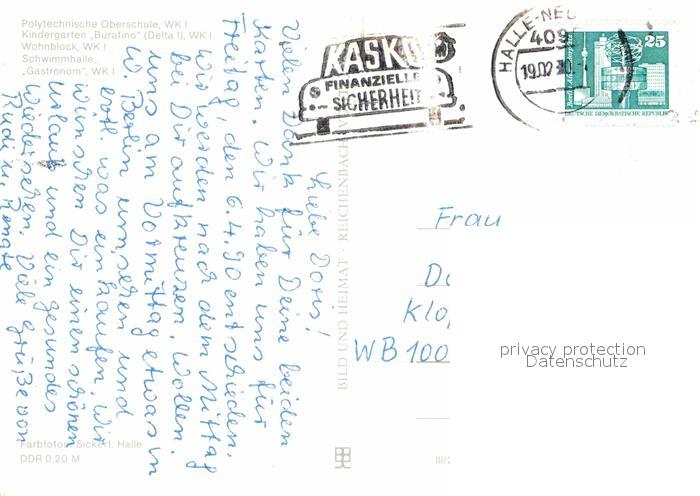 Polytechnische Oberschule, WK I
Kindergarten „Buratino" (Delta I), WK I
Wohnblock, WK I
Schwimmhalle,
„Gastronom", WK I
KASKO
FINANZIELLE
SICHERHEIT
HALLE-NEU
409
19.02.90
Berlin, Alexanderplatz
25
DEUTSCHE DEMOKRATISCHE REPUBLIK
Liebe Doris!
Vielen Dank für Deine beiden
Karten. Wir haben uns für
Freitag den 6.4.90 entschieden.
Wir werden nach dem Mittag
bei Dir aufkreuzen. Wollen
uns am Vormittag etwas in
W Berlin umsehen und
evtl. was einkaufen. Wir
wünschen Dir einen schönen
Urlaub und ein gesundes
Wiedersehen. Viele Grüße von
Rudi u. Renate
BILD UND HEIMAT · REICHENBACH
Frau
Do
Klo
WB 100
privacy protection
Datenschutz
Farbfoto: Sickert, Halle
DDR 0,20 M
III/2